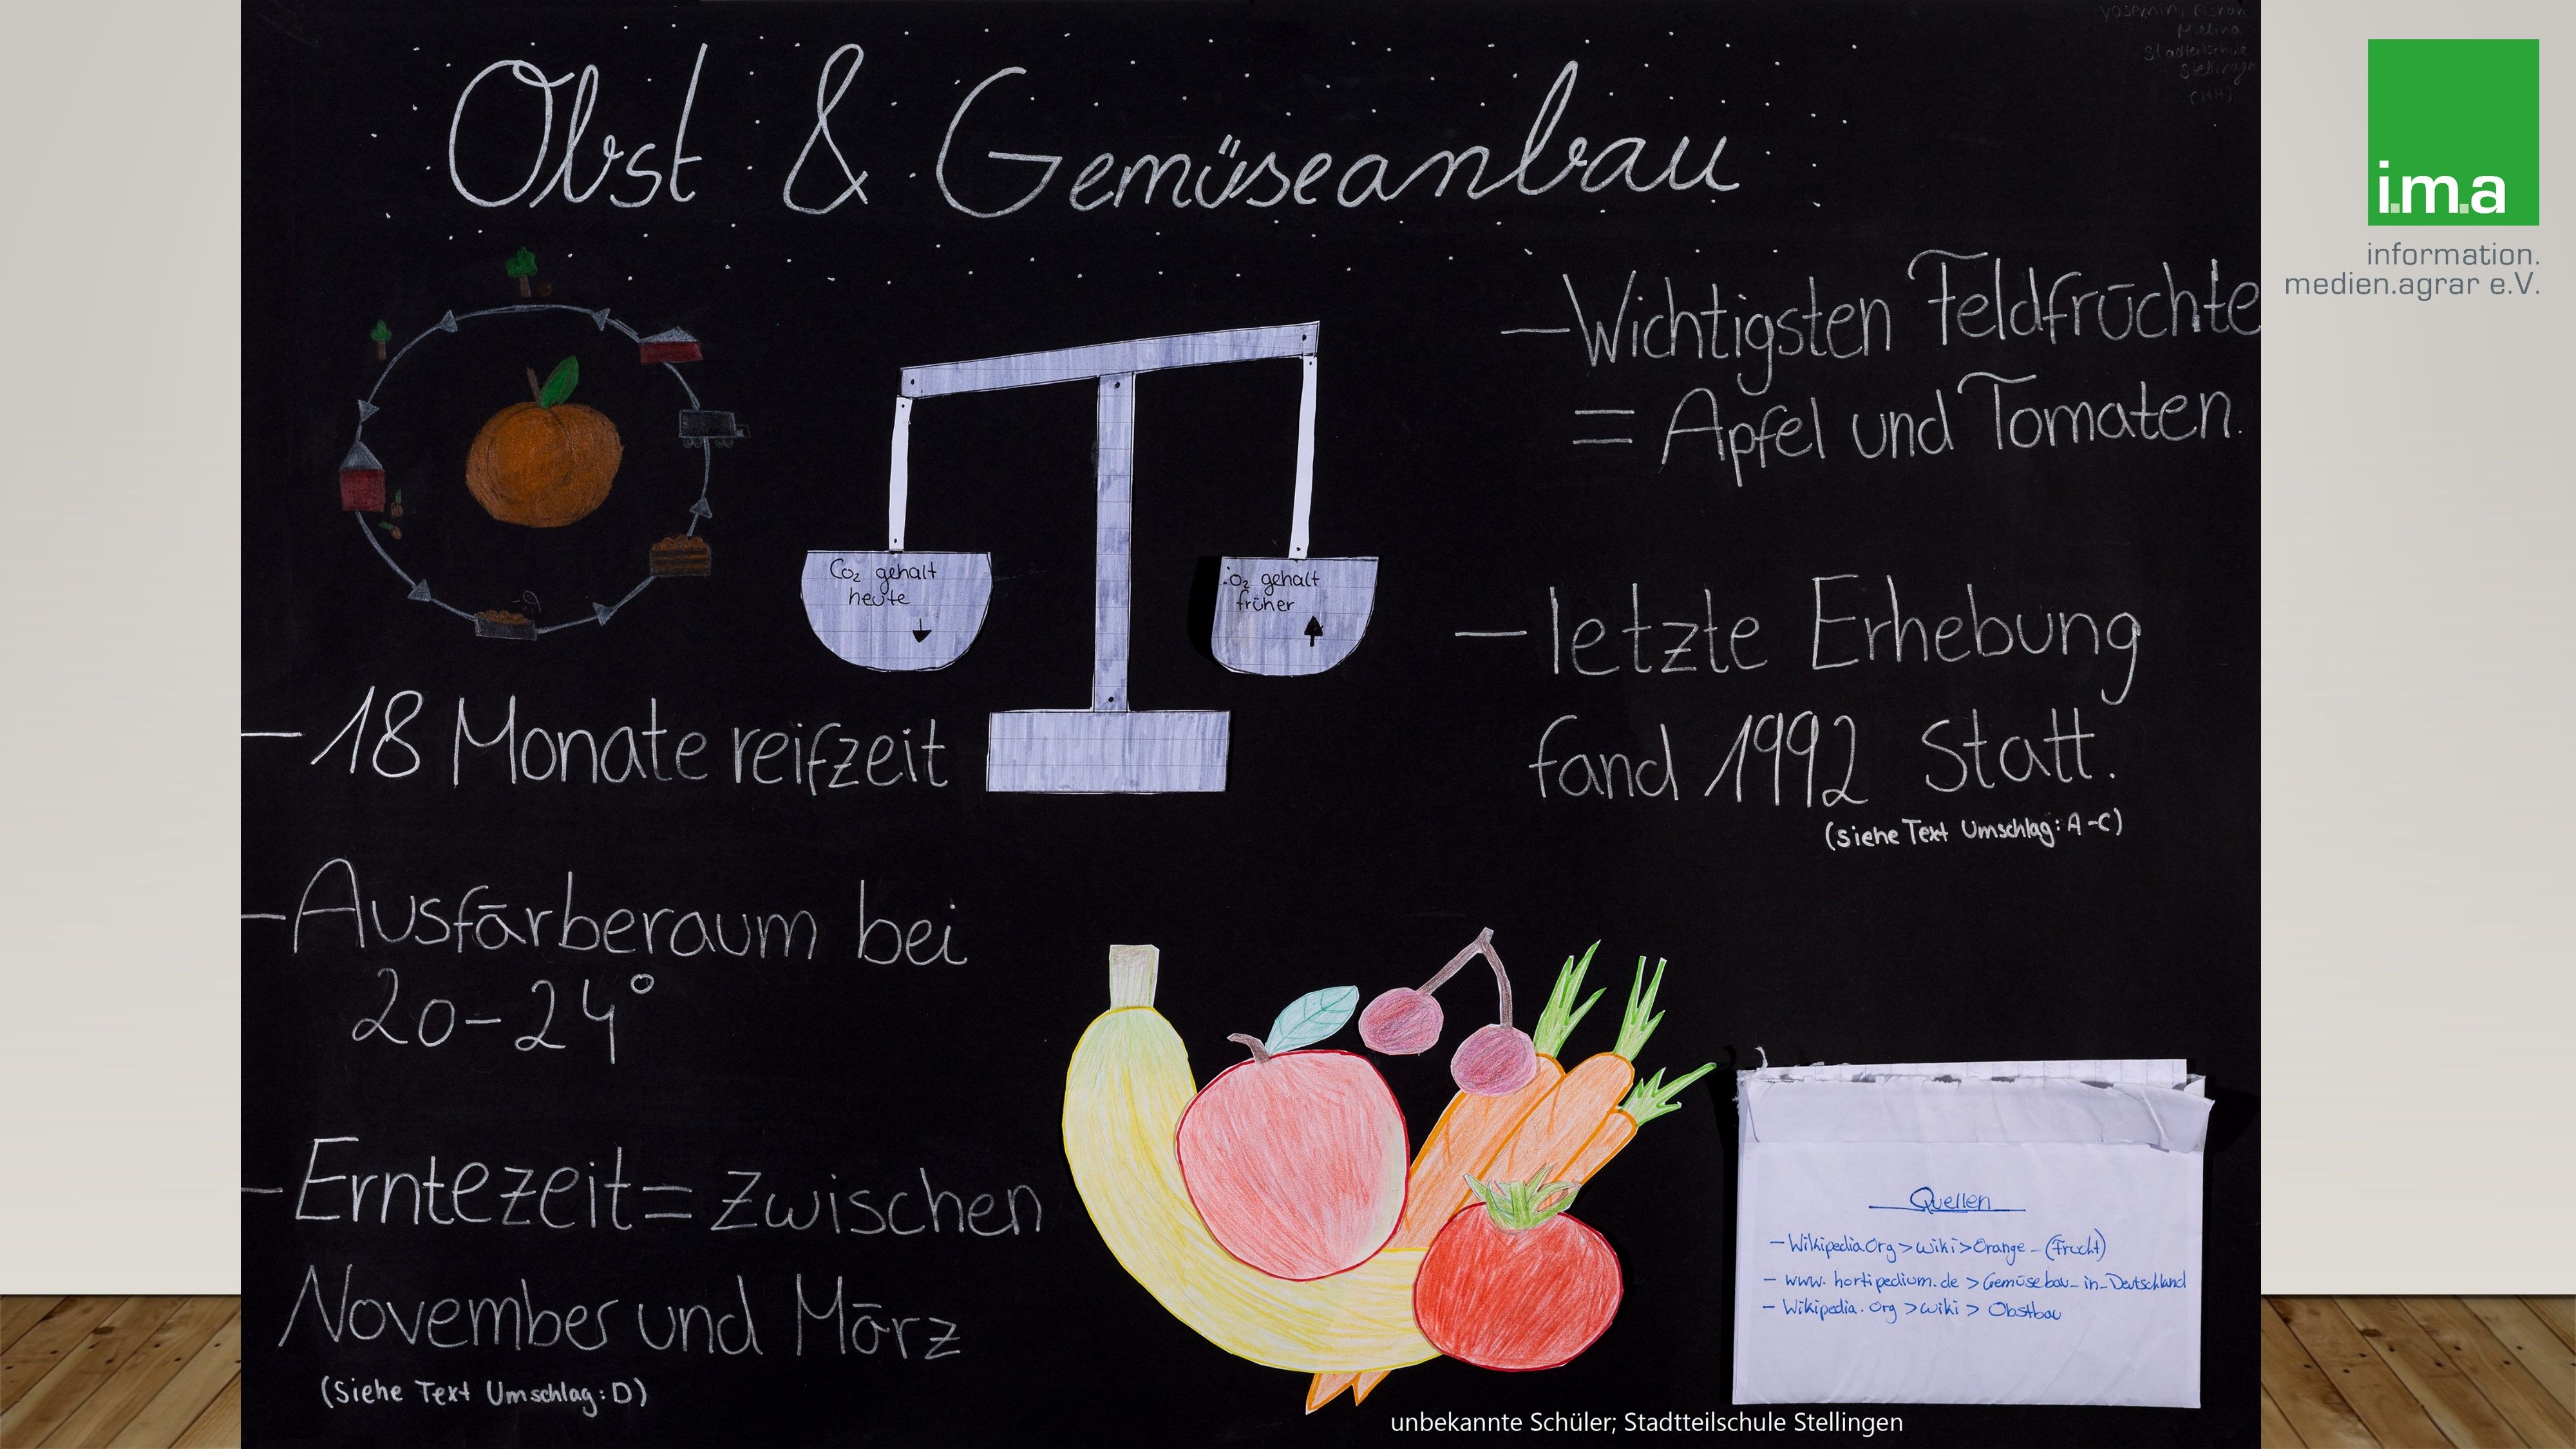 Obst & Gemüseanbau
Yosemin,
Melina
Stadteilschule
Stellingen
(HH)
i.m.a
information.
medien.agrar e.V.
– Wichtigsten Feldfrüchte
= Apfel und Tomaten.
Co₂ gehalt
heute
o₂ gehalt
früher
– letzte Erhebung
fand 1992 Statt.
(Siehe Text Umschlag: A-C)
– 18 Monate reifzeit
– Ausfärberaum bei
20-24°
– Erntezeit = Zwischen
November und März
(Siehe Text Umschlag: D)
Quellen
– Wikipedia.Org > wiki > Orange_(Frucht)
– www.hortipedium.de > Gemüsebau_in_Deutschland
– Wikipedia.Org > wiki > Obstbau
unbekannte Schüler; Stadtteilschule Stellingen